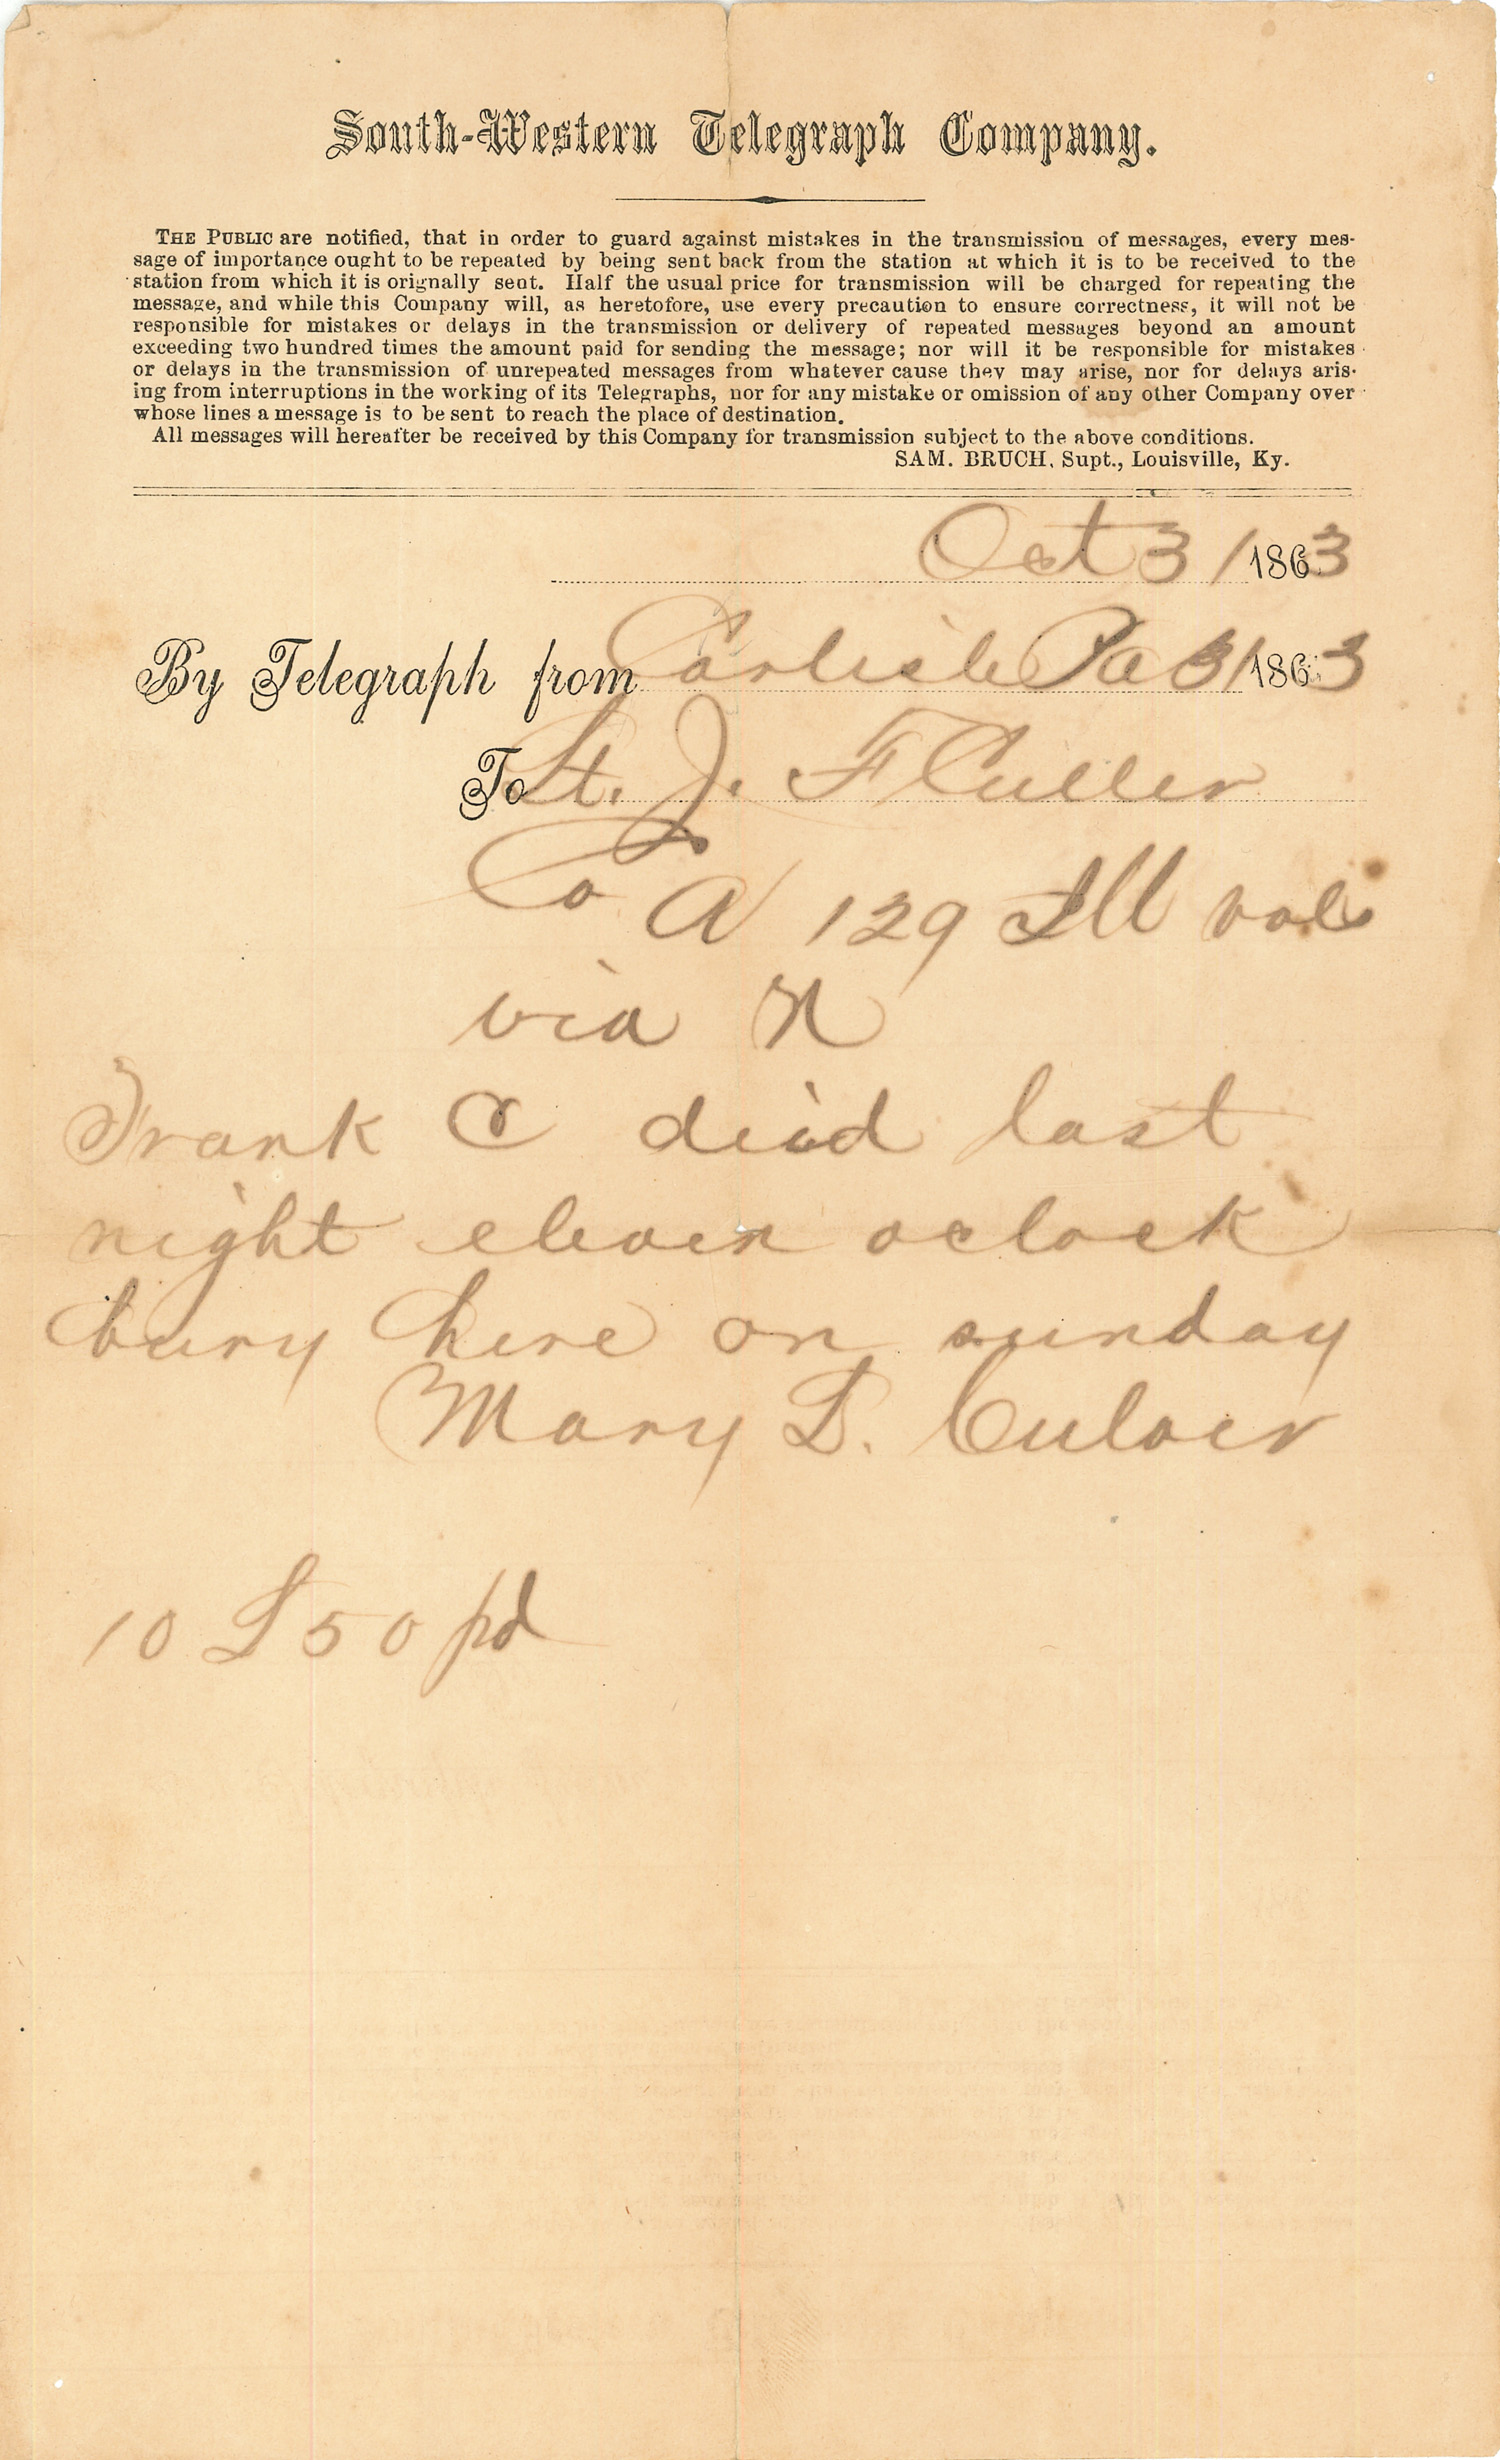 South-Western Telegraph Company.
THE PUBLIC are notified, that in order to guard against mistakes in the transmission of messages, every mes-
sage of importance ought to be repeated by being sent back from the station at which it is to be received to the
station from which it is orignally sent. Half the usual price for transmission will be charged for repeating the
message, and while this Company will, as heretofore, use every precaution to ensure correctness, it will not be
responsible for mistakes or delays in the transmission or delivery of repeated messages beyond an amount
exceeding two hundred times the amount paid for sending the message; nor will it be responsible for mistakes
or delays in the transmission of unrepeated messages from whatever cause they may arise, nor for delays aris-
ing from interruptions in the working of its Telegraphs, nor for any mistake or omission of any other Company over
whose lines a message is to be sent to reach the place of destination.
All messages will hereafter be received by this Company for transmission subject to the above conditions.
SAM. BRUCH, Supt., Louisville, Ky.
Oct 31 1863
By Telegraph from Carlisle Pa 31 1863
To Lt. J. F Culler
Co A 129 Ill vols
via N
Frank C died last
night eleven oclock
bury here on sunday
Mary D. Culver
10 $ 50 pd